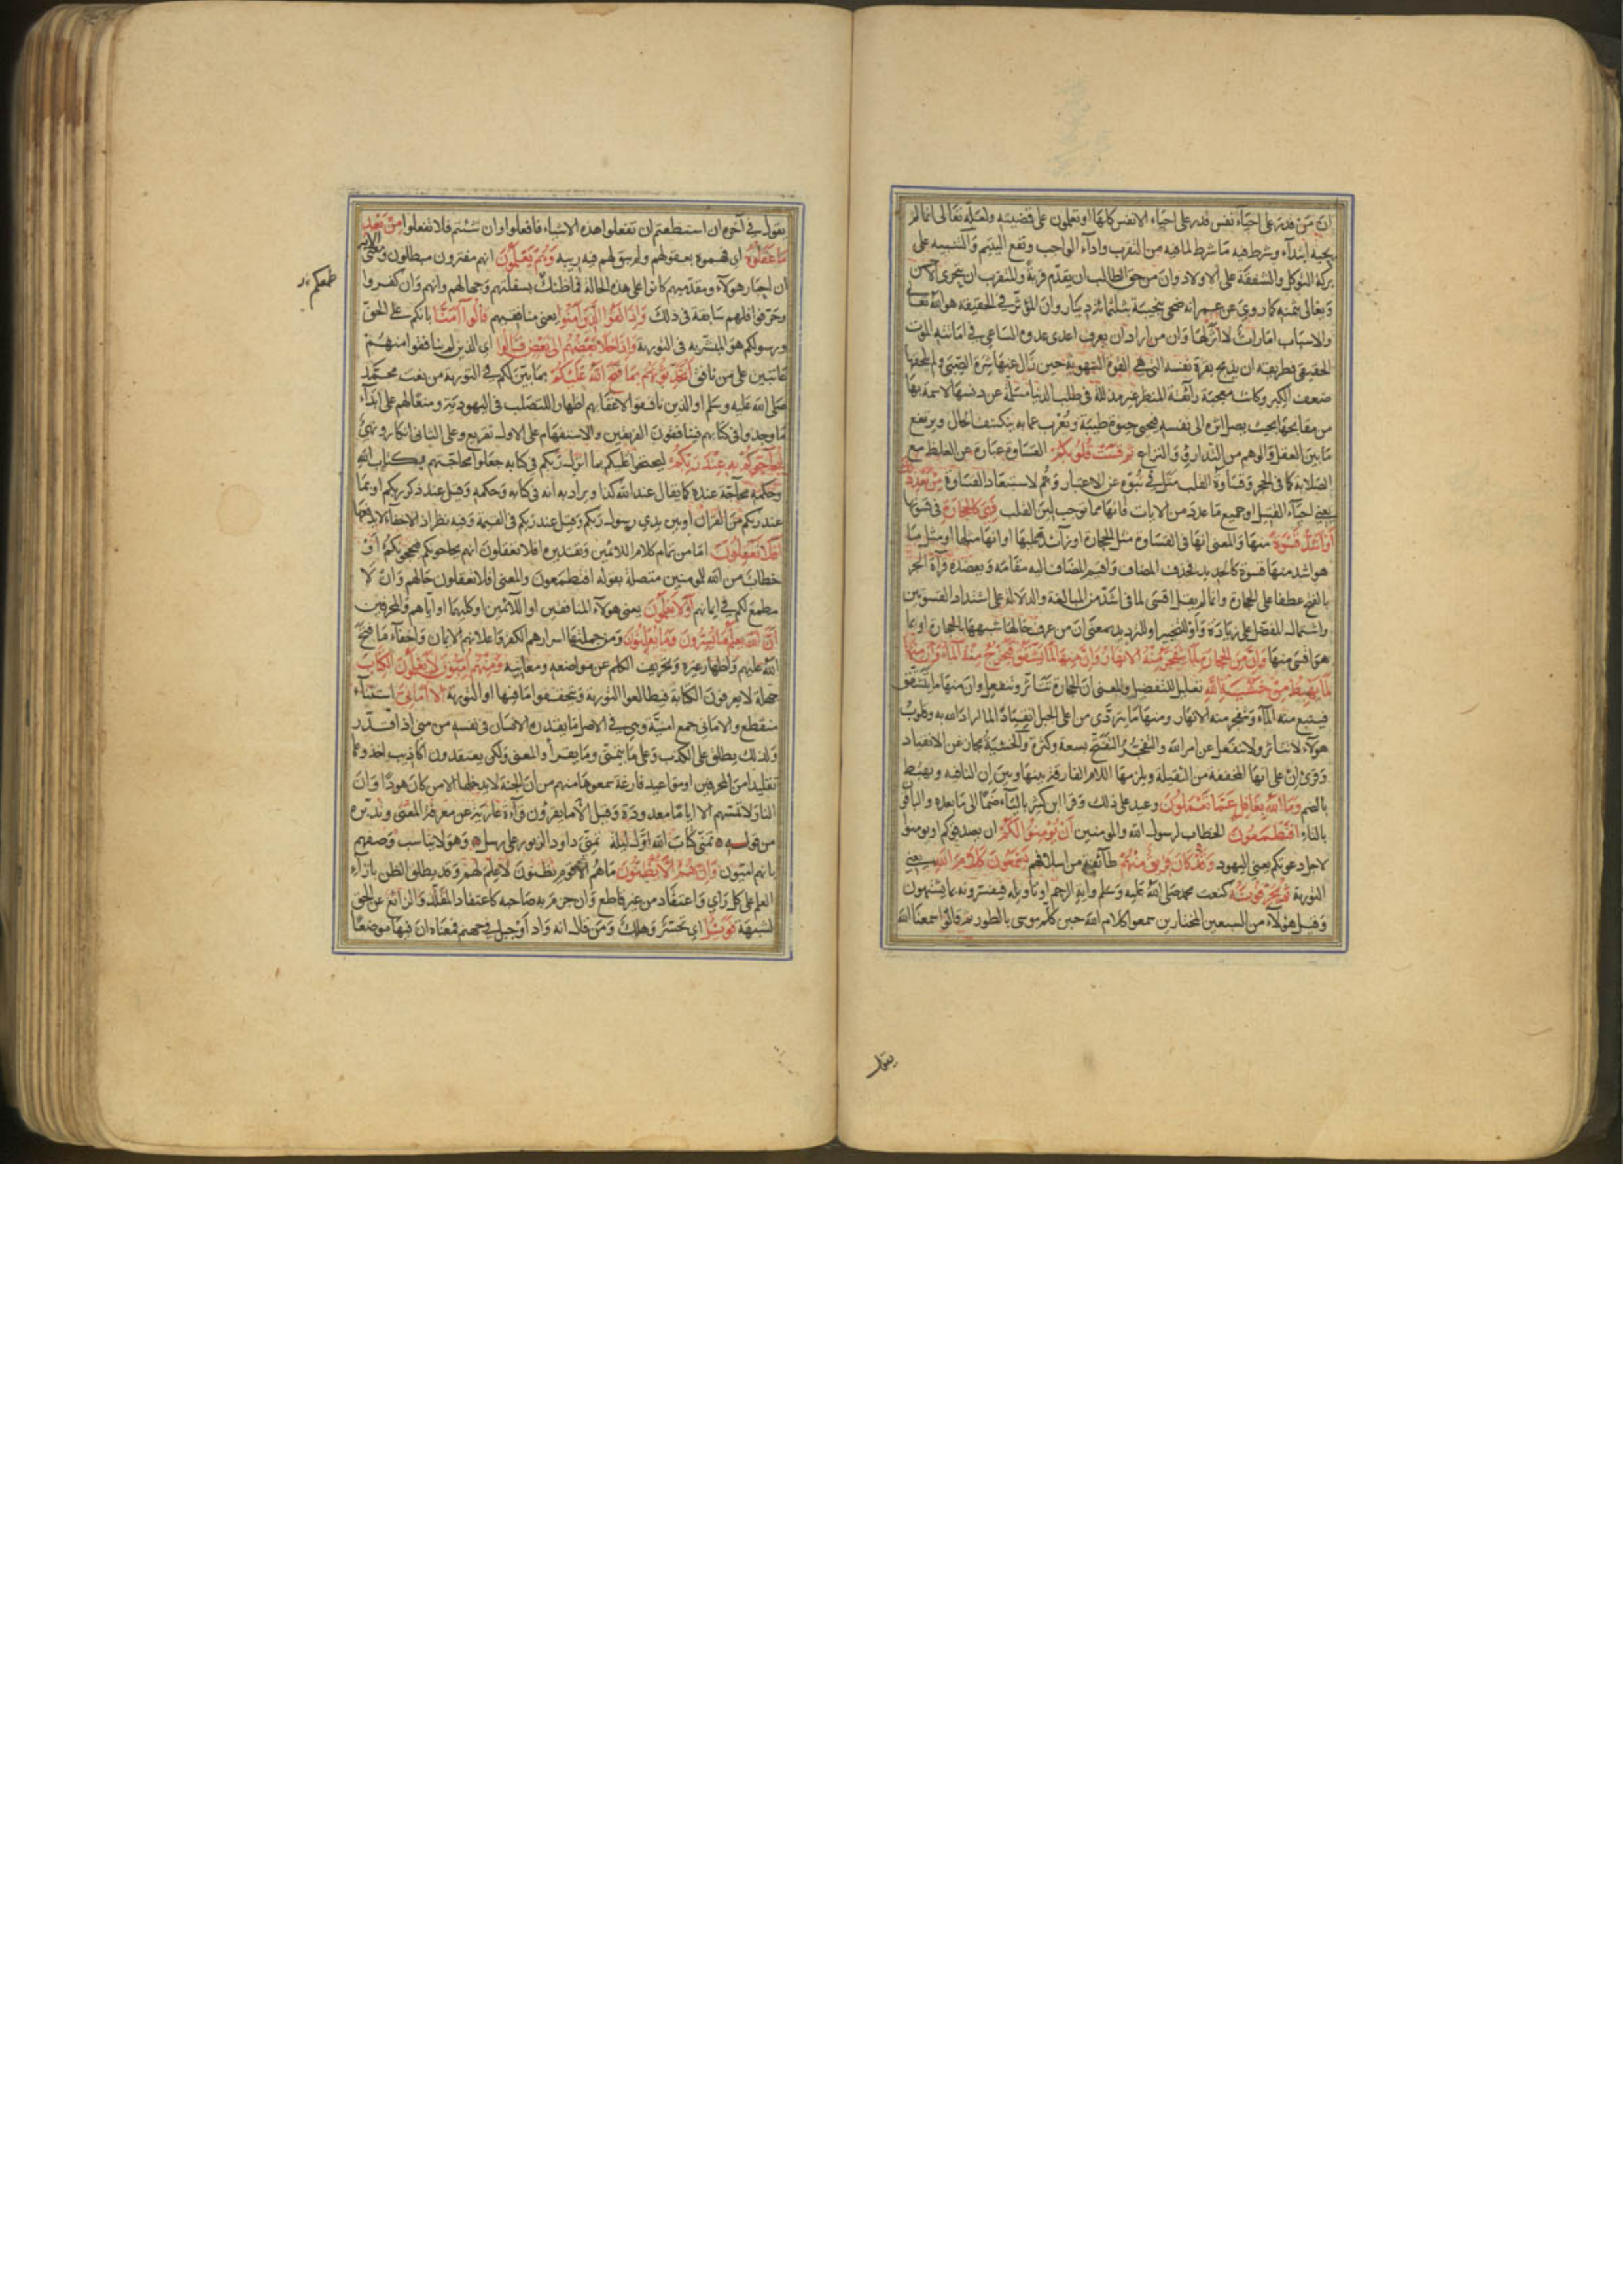 ان من قدر على احياء نفس قدر على احياء الانفس كلها او تعملون على قضيته ولعله تعالى انما لم
يحيه ابتداء وشرط فيه ما شرط لما فيه من التقرب واداء الواجب ونفع اليتيم والتنبيه على
بركة التوكل والشفقة على الاولاد وان من حق الطالب ان يقدم قربة والمتقرب ان يتحرى الاحسن
ويغالى بثمنه كما روي عن عمر انه ضحى بنجيبة بثلثمائة دينار وان المؤثر في الحقيقة هو الله تعالى
والاسباب امارات لا اثر لها وان من اراد ان يعرف اعدى عدوه الساعي في اماتته الموت
الحقيقي فطريقه ان يذبح بقرة نفسه التي هي القوة الشهوية حين زال عنها شره الصبى ولم يلحقها
ضعف الكبر وكانت معجبة رائقة المنظر غير مذللة في طلب الدنيا مسلمة عن دنسها لا سمة بها
من مقابحها بحيث يصل اثره الى نفسه فيحيى حيوة طيبة وتعرب عما به ينكشف الحال ويرتفع
ما بين العقل والوهم من التدارؤ والنزاع ثم قست قلوبكم القساوة عبارة عن الغلظ مع
الصلابة كما في الحجر وقساوة القلب مثل في نبوه عن الاعتبار وثم لاستبعاد القساوة من بعد ذلك
يعني احياء القتيل او جميع ما عدد من الايات فانها مما توجب لين القلب فهي كالحجارة في قسوتها
او اشد قسوة منها والمعنى انها في القساوة مثل الحجارة او زائدة عليها او انها مثلها او مثل ما
هو اشد منها قسوة كالحديد فحذف المضاف واقيم المضاف اليه مقامه ويعضده قراءة الجر
بالفتح عطفا على الحجارة وانما لم يقل اقسى لما في اشد من المبالغة والدلالة على اشتداد القسوتين
واشتمال المفضل على زيادة واو للتخيير او للترديد بمعنى ان من عرف حالها شبهها بالحجارة او بما
هو اقسى منها وان من الحجارة لما يتفجر منه الانهار وان منها لما يشقق فيخرج منه الماء وان منها
لما يهبط من خشية الله تعليل للتفضيل والمعنى ان الحجارة تتأثر وتنفعل وان منها ما يتشقق
فينبع منه الماء وتتفجر منه الانهار ومنها ما يتردى من اعلى الجبل انقيادا لما اراد الله به وقلوب
هؤلاء لا تتاثر ولا تنفعل عن امر الله والتفجر التفتح بسعة وكثرة والخشية مجاز عن الانقياد
وقرئ ان على انها المخففة من الثقيلة ويلزمها اللام الفارقة بينها وبين ان النافية ويهبط
بالضم وما الله بغافل عما تعملون وعيد على ذلك وقرا ابن كثير بالياء ضما الى ما بعده والباقي
بالتاء افتطمعون الخطاب لرسول الله والمومنين ان يؤمنوا لكم ان يصدقوكم او يومنوا
لاجل دعوتكم يعني اليهود وقد كان فريق منهم طائفة من اسلافهم يسمعون كلام الله يعني
التورية ثم يحرفونه كنعت محمد صلى الله عليه وسلم واية الرجم او تاويله فيفسرونه بما يشتهون
وقيل هؤلاء من السبعين المختارين سمعوا كلام الله حين كلم موسى بالطور ثم قالوا سمعنا الله
يقول
يقول في آخره ان استطعتم ان تفعلوا هذه الاشياء فافعلوا وان شئتم فلا تفعلوا من بعد
ما عقلوه اى فهموه بعقولهم ولم يبق لهم فيه ريبة وهم يعلمون انهم مفترون مبطلون ومعنى الاية
ان احبار هولاء ومقدميهم كانوا على هذه الحالة فما ظنك بسفلتهم وجهالهم وانهم وان كفروا
طمعكم
وحرفوا فلهم سابقة في ذلك واذا لقوا الذين آمنوا يعنى منافقيهم قالوا آمنا بانكم على الحق
ورسولكم هو المبشر به في التورية واذا خلا بعضهم الى بعض قالوا اى الذين لم ينافقوا منهم
عاتبين على من نافق اتحدثونهم بما فتح الله عليكم بما بين لكم في التورية من نعت محمد
صلى الله عليه وسلم او الذين نافقوا لاعقابهم اظهارا للتصلب في اليهودية ومنعا لهم على ابداء
ما وجدوا في كتابهم فينافقون الفريقين والاستفهام على الاول تقريع وعلى الثانى انكار ونهي
ليحاجوكم به عند ربكم ليحتجوا عليكم بما انزل ربكم في كتابه جعلوا محاجتهم بكتاب الله
وحكمه محاجة عنده كما يقال عند الله كذا ويراد به انه في كتابه وحكمه وقيل عند ذكر ربكم او بما
عند ربكم من القران او بين يدي رسول ربكم وقيل عند ربكم في القيمة وفيه نظر اذ الاخفاء لا يدفعها
افلا تعقلون اما من تمام كلام اللائمين وتقديره افلا تعقلون انهم يحاجوكم فيحجوكم او
خطاب من الله للمومنين متصلة بقوله افتطمعون والمعنى افلا تعقلون حالهم وان لا
مطمع لكم في ايمانهم اولا يعلمون يعنى هولاء المنافقين او اللائمين او كليهما او اياهم والمحرفين
ان الله يعلم ما يسرون وما يعلنون ومن جملتها اسرارهم الكفر واعلانهم الايمان واخفاء ما فتح
الله عليهم واظهار غيره وتحريف الكلم عن مواضعه ومعانيه ومنهم اميون لا يعلمون الكتاب
جهلة لا يعرفون الكتابة فيطالعوا التورية ويتحققوا ما فيها او التورية الا امانى استثناء
منقطع والامانى جمع امنية وهي في الاصل ما يقدره الانسان في نفسه من منى اذا قدر
ولذلك يطلق على الكذب وعلى ما يتمنى وما يقرأ والمعنى ولكن يعتقدون اكاذيب اخذوها
تقليدا من المحرفين او مواعيد فارغة سمعوها منهم من ان الجنة لا يدخلها الا من كان هودا وان
النار لا تمسهم الا اياما معدودة وقيل الا ما يقرؤن قراءة عارية عن معرفة المعنى وتدبره
من قوله تمنى كتاب الله اول ليلة تمني داود الزبور على رسل وهو لا يناسب وصفهم
بانهم اميون وان هم الا يظنون ما هم الا قوم يظنون لا علم لهم وقد يطلق الظن بازاء
العلم على كل راي واعتقاد من غير قاطع وان جزم به صاحبه كاعتقاد المقلد والزائغ عن الحق
لشبهة فويل اي تحسر وهلك ومن قال انه واد او جبل في جهنم فمعناه ان فيها موضعا